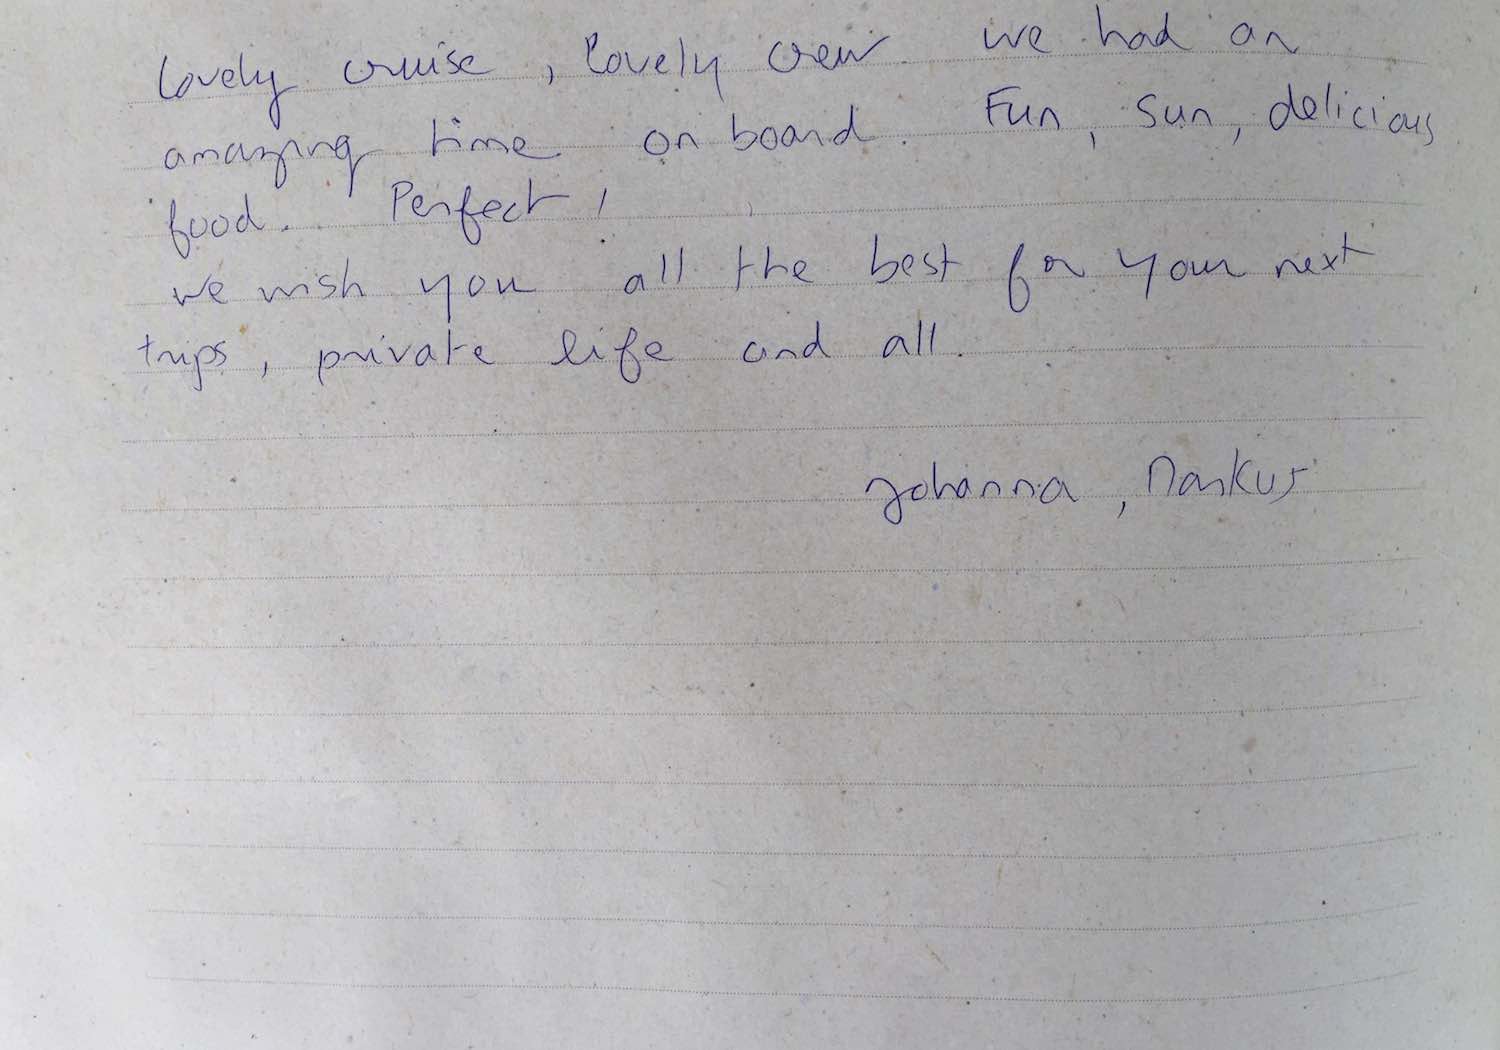 Lovely cruise, lovely crew. We had an
amazing time on board. Fun, sun, delicious
food. Perfect!
We wish you all the best for your next
trips, private life and all.
Johanna, Markus